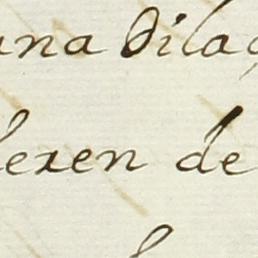 una dila
lexen de